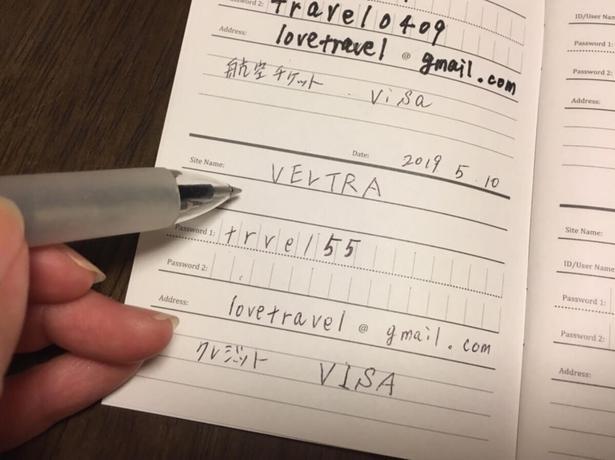 Password 2: travel0409
Address: lovetravel @ gmail.com
航空チケット visa
Date: 2019 5.10
Site Name: VELTRA
Password 1: trvel55
Password 2:
Address: lovetravel @ gmail.com
クレジット VISA
ID/User Name
Password 1:
Password 2:
Address:
Site Name:
ID/User Name
Password 1:
Password 2:
Address: